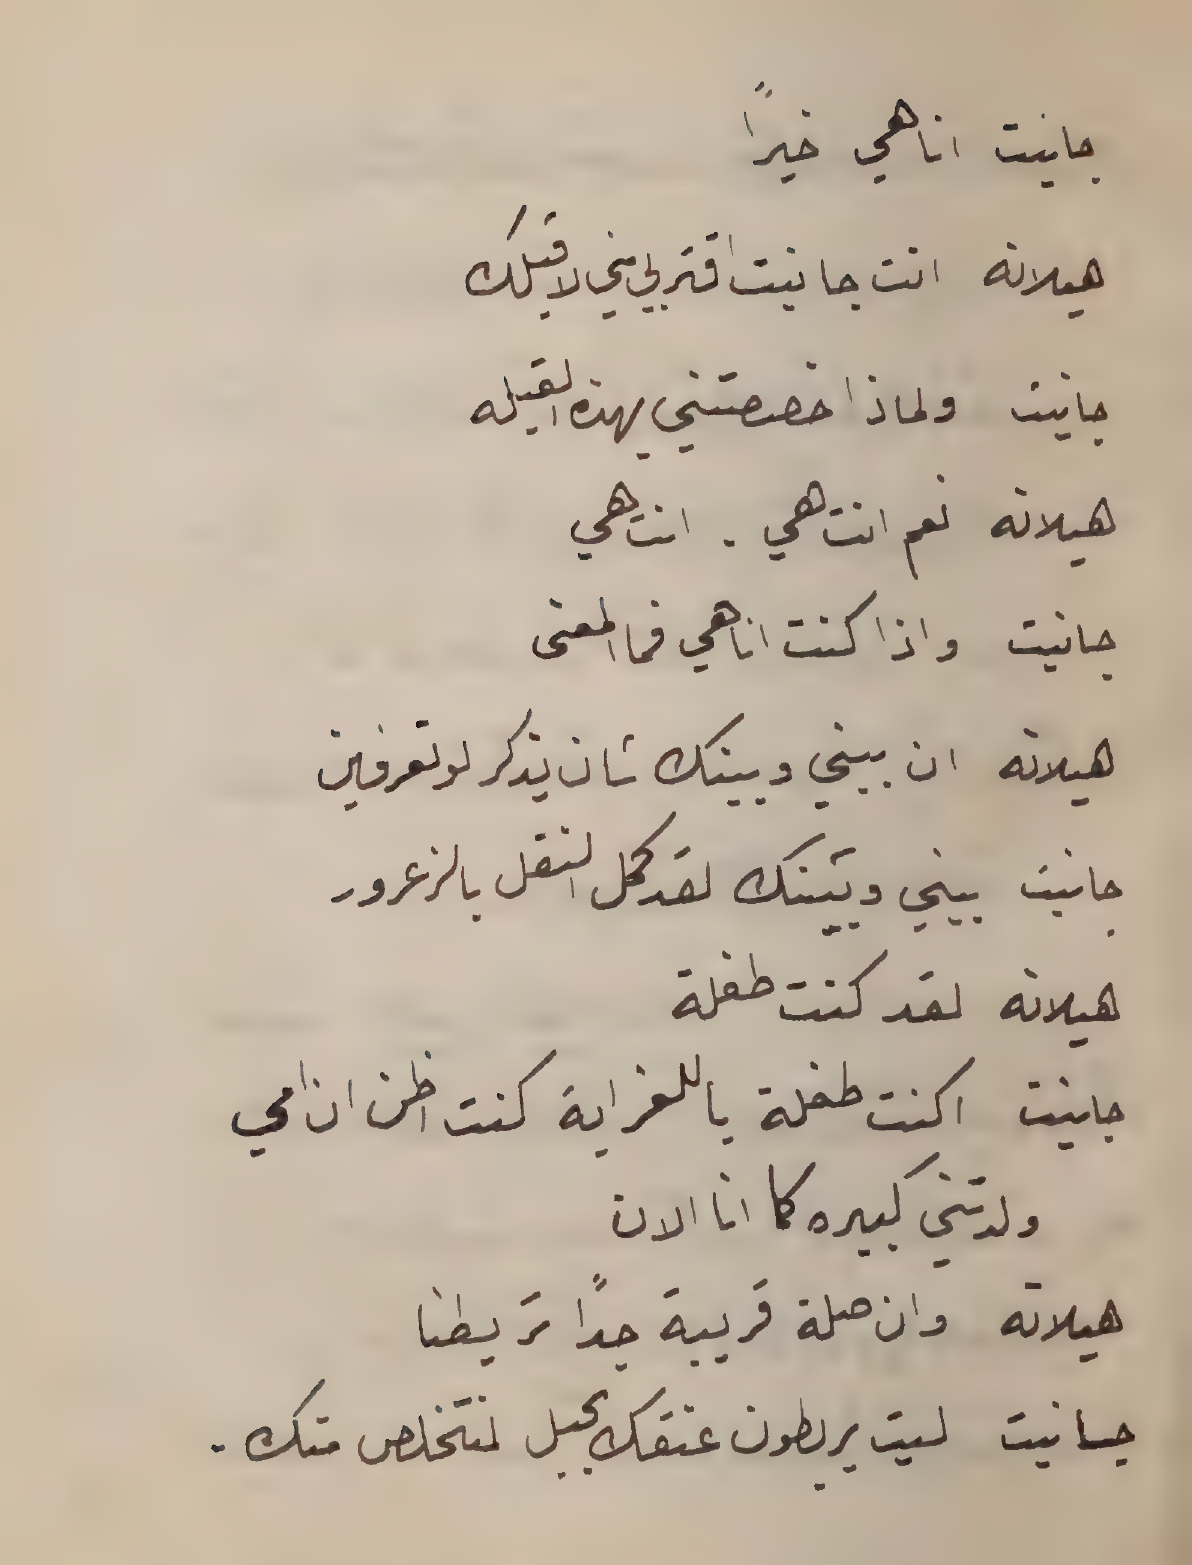 جانيت انا هي خيرًا
هيلانه انت جانيت اقتربي مني لاقبلك
جانيت ولماذا خصصتني بهذه القبله
هيلانه نعم انت هي . انت هي
جانيت واذا كنت انا هي فما المعنى
هيلانه ان بيني وبينك شان يذكر لو تعرفين
جانيت بيني وبينك لقد كمل النقل بالزعرور
هيلانه لقد كنت طفلة
جانيت اكنت طفلة ياللغرابة كنت اظن ان امي
ولدتني كبيره كما انا الان
هيلانه وان صلة قريبة جدًا تربطنا
جانيت ليت يربطون عنقك بحبل لنتخلص منك .